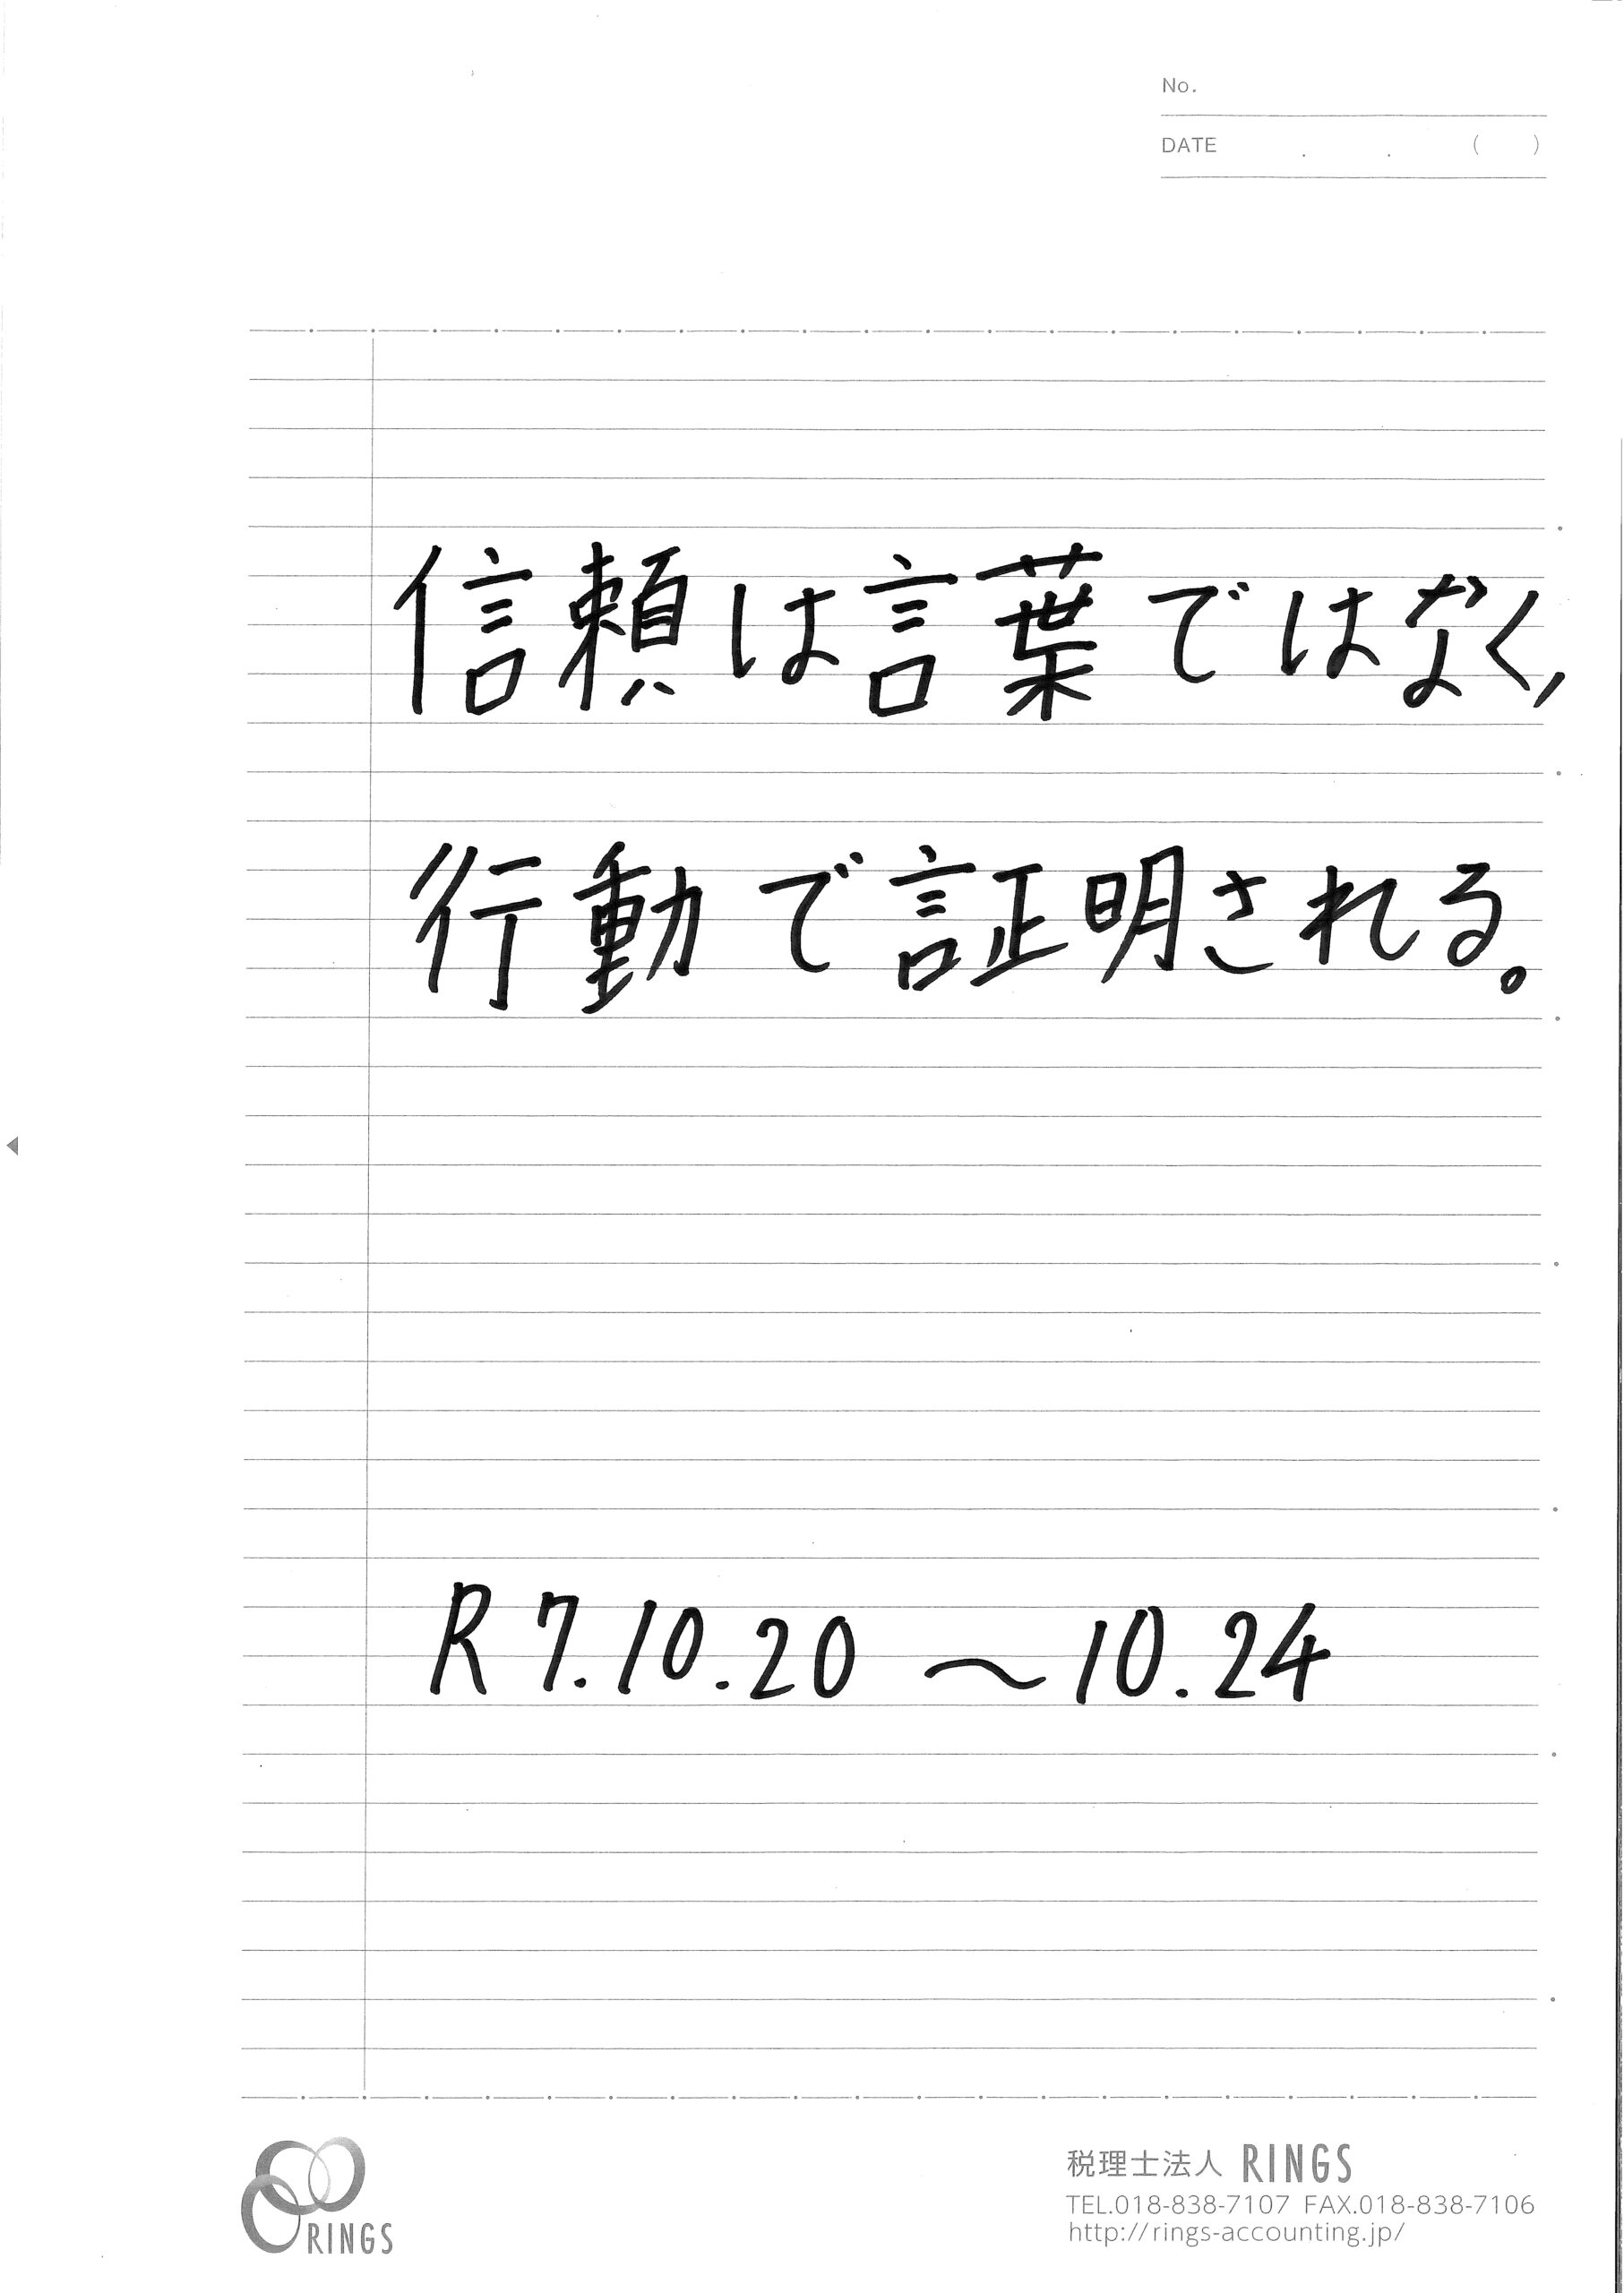 No.
DATE . . ( )
信頼は言葉ではなく,
行動で証明される。
R7.10.20～10.24
RINGS
税理士法人 RINGS
TEL.018-838-7107 FAX.018-838-7106
http://rings-accounting.jp/